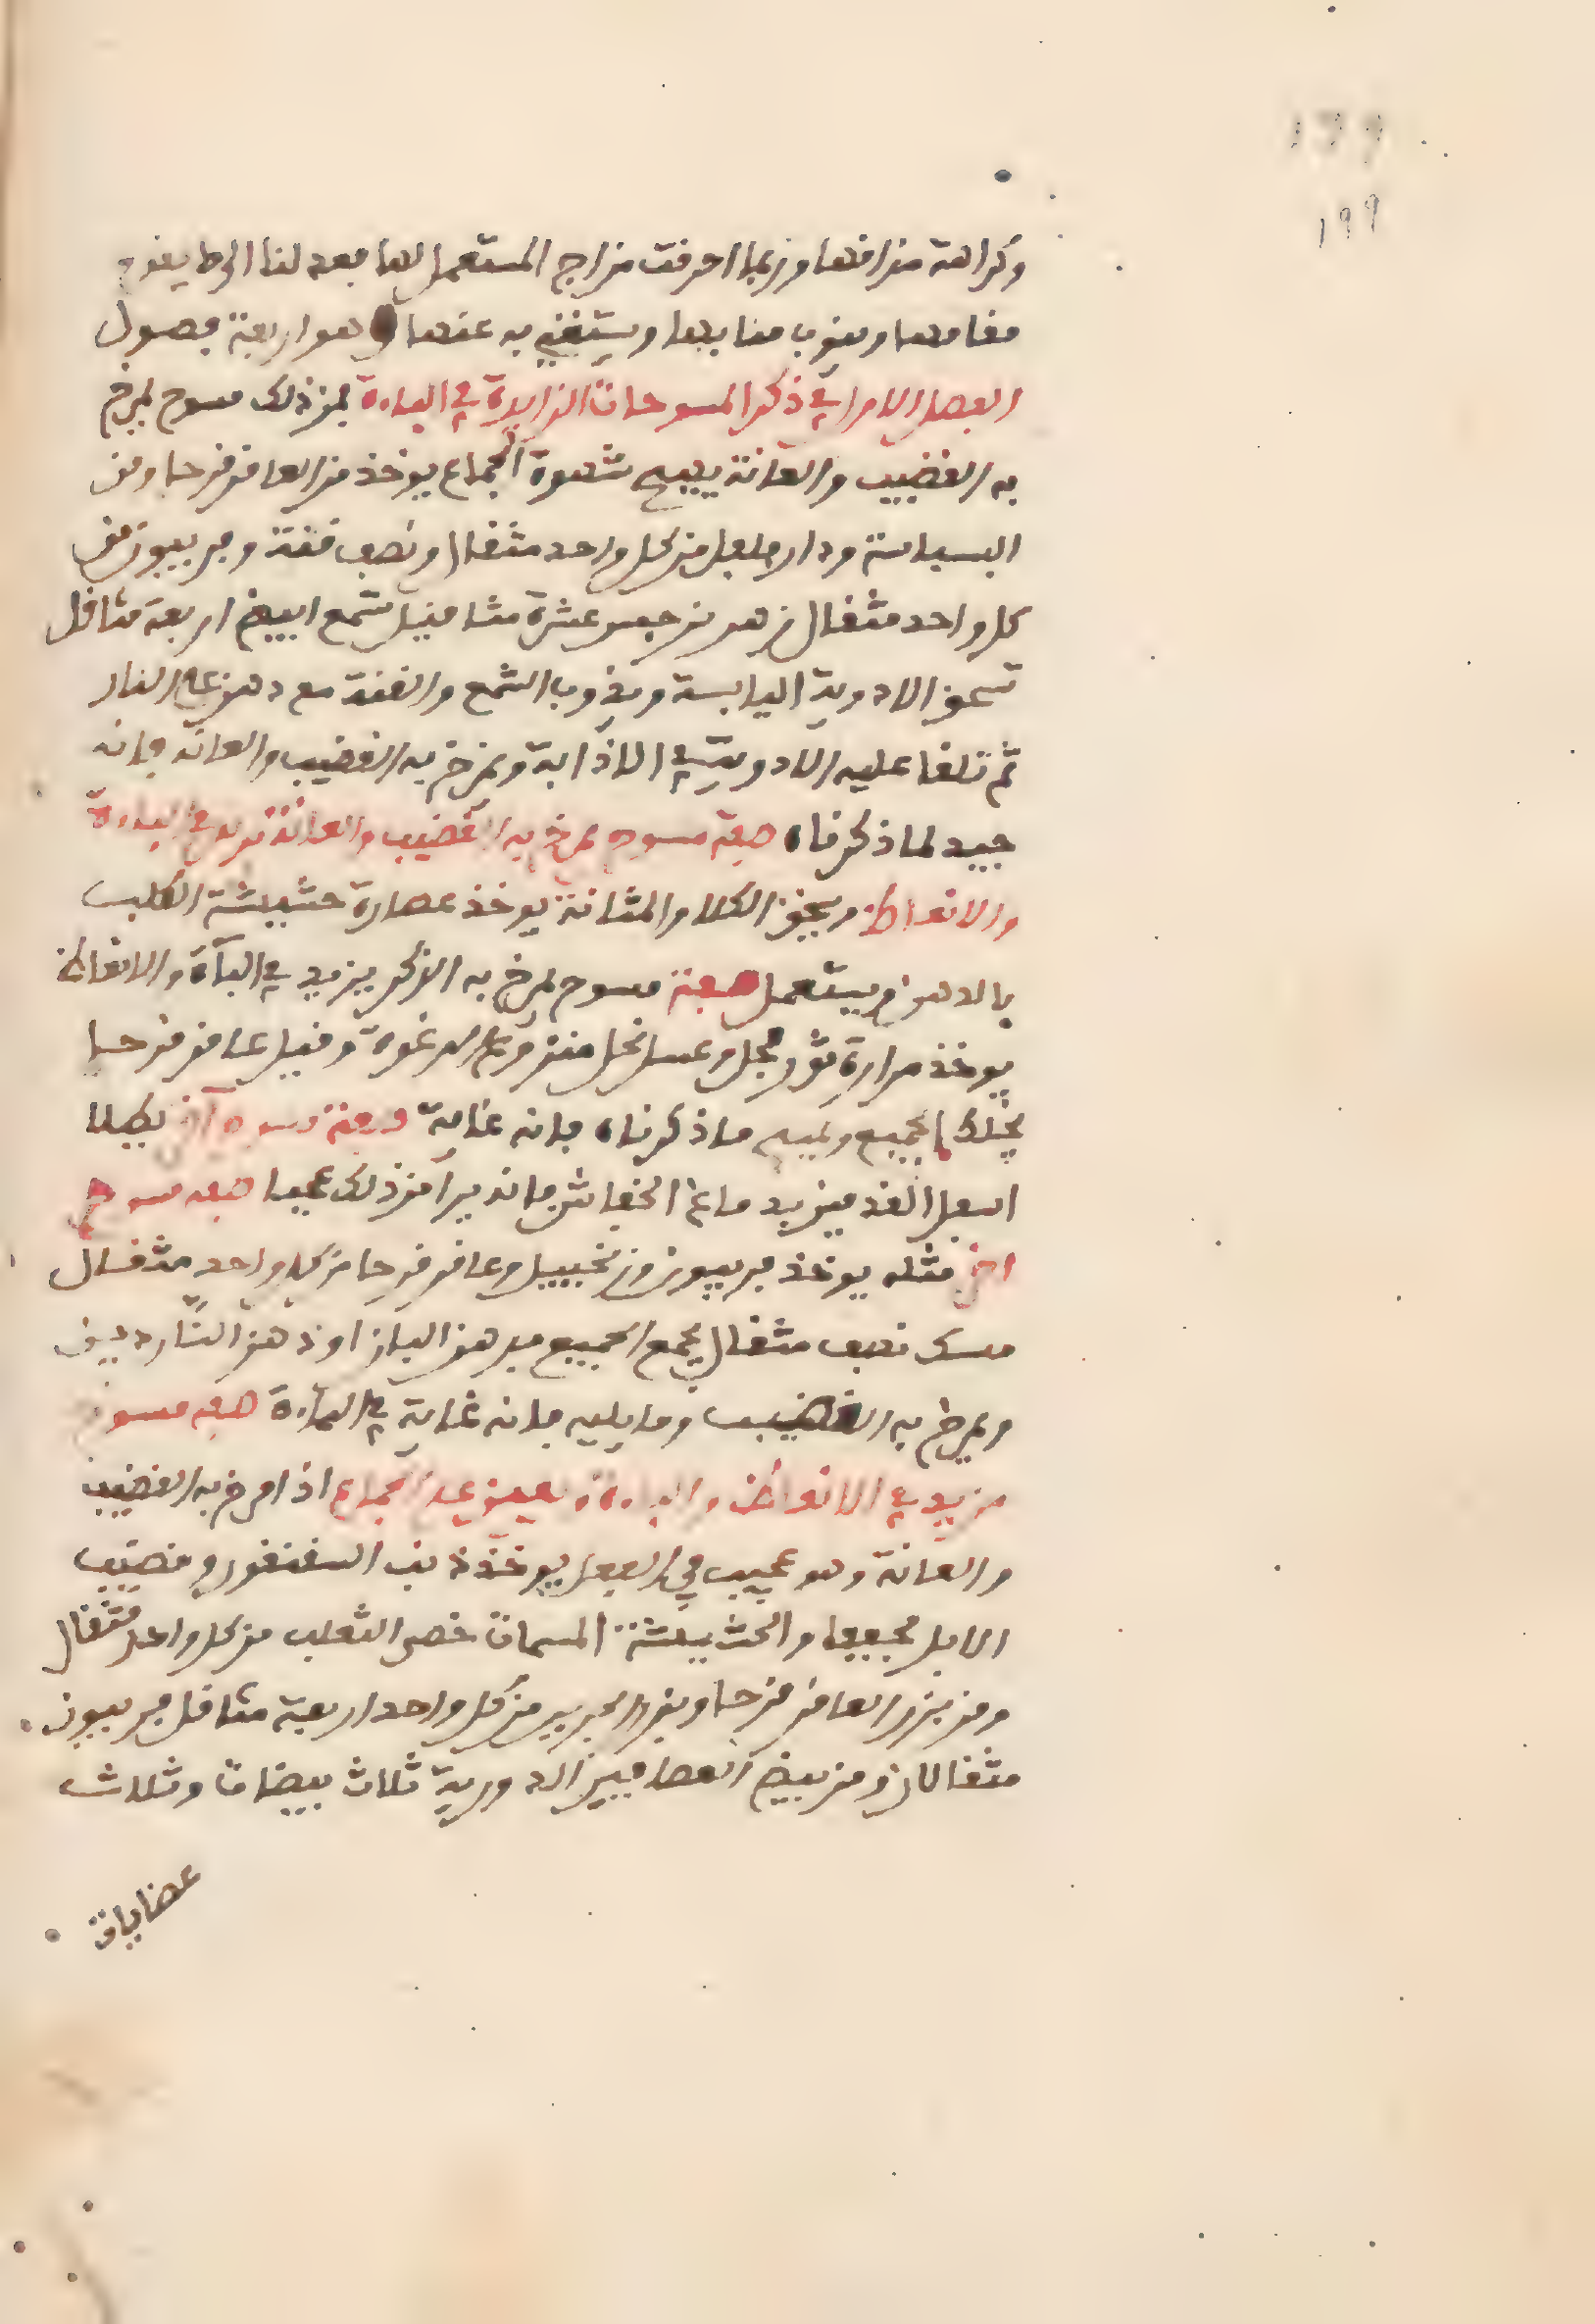 ١٩٩
١٩٩
وكراهة مذاقها وربما احرفت مزاج المستعمل لها فعدلنا الى ما يقوم
مقامها وينوب منابها ويستغنى به عنها وهو اربعة فصول
الفصل الاول في ذكر المسوحات الزايدة في الباءة فمن ذلك مسوح يمرخ
به القضيب والعانة يهيج شهوة الجماع يوخذ من العاقر قرحا ومن
البسباسة ودار فلفل من كل واحد مثقال ونصف قنة وفربيون من
كل واحد مثقال زهر نرجس عشرة مثاقيل شمع ابيض اربعة مثاقل
تسحق الادوية اليابسة ويذوب الشمع والقنة مع دهن على النار
ثم تلقا عليه الادوية في الاذابة ويمرخ به القضيب والعانة فانه
جيد لما ذكرناه صفة مسوح يمرخ به القضيب والعانة تزيد في الباءة
والانعاظ ويسخن الكلا والمثانة يوخذ عصارة حشيشة الكلب
بالدهن ويستعمل صفة مسوح يمرخ به الذكر يزيد في الباءة والانعاظ
يوخذ مرارة ثور فحل وعسل نحل منزوع الرغوة وقليل عاقر قرحا
يخلط الجميع ويمسح ما ذكرناه فانه غاية صفة مسوح اخر يطلا
اسفل القدمين بدماغ الخفاش فانه يرا من ذلك عجبا صفة مسوح
اخر مثله يوخذ فربيون وزنجبيل وعاقر قرحا من كل واحد مثقال
مسك نصف مثقال يجمع الجميع بدهن البان او دهن النارديين
ويمرخ به القضيب وما يليه فانه غاية في الباءة صفة مسوح
يزيد في الانعاظ والباءة ويعين على الجماع اذا مرخ به القضيب
والعانة وهو عجيب في الفعل يوخذ ذنب السقنقور وقضيب
الايل مجففا والحشيشة المسمات خصى الثعلب من كل واحد مثقال
ومن بزر العاقر قرحا وبزر الجرجير من كل واحد اربعة مثاقل فربيون
مثقالان ومن بيض العصافير الدورية ثلاث بيضات وثلاث
عضايات